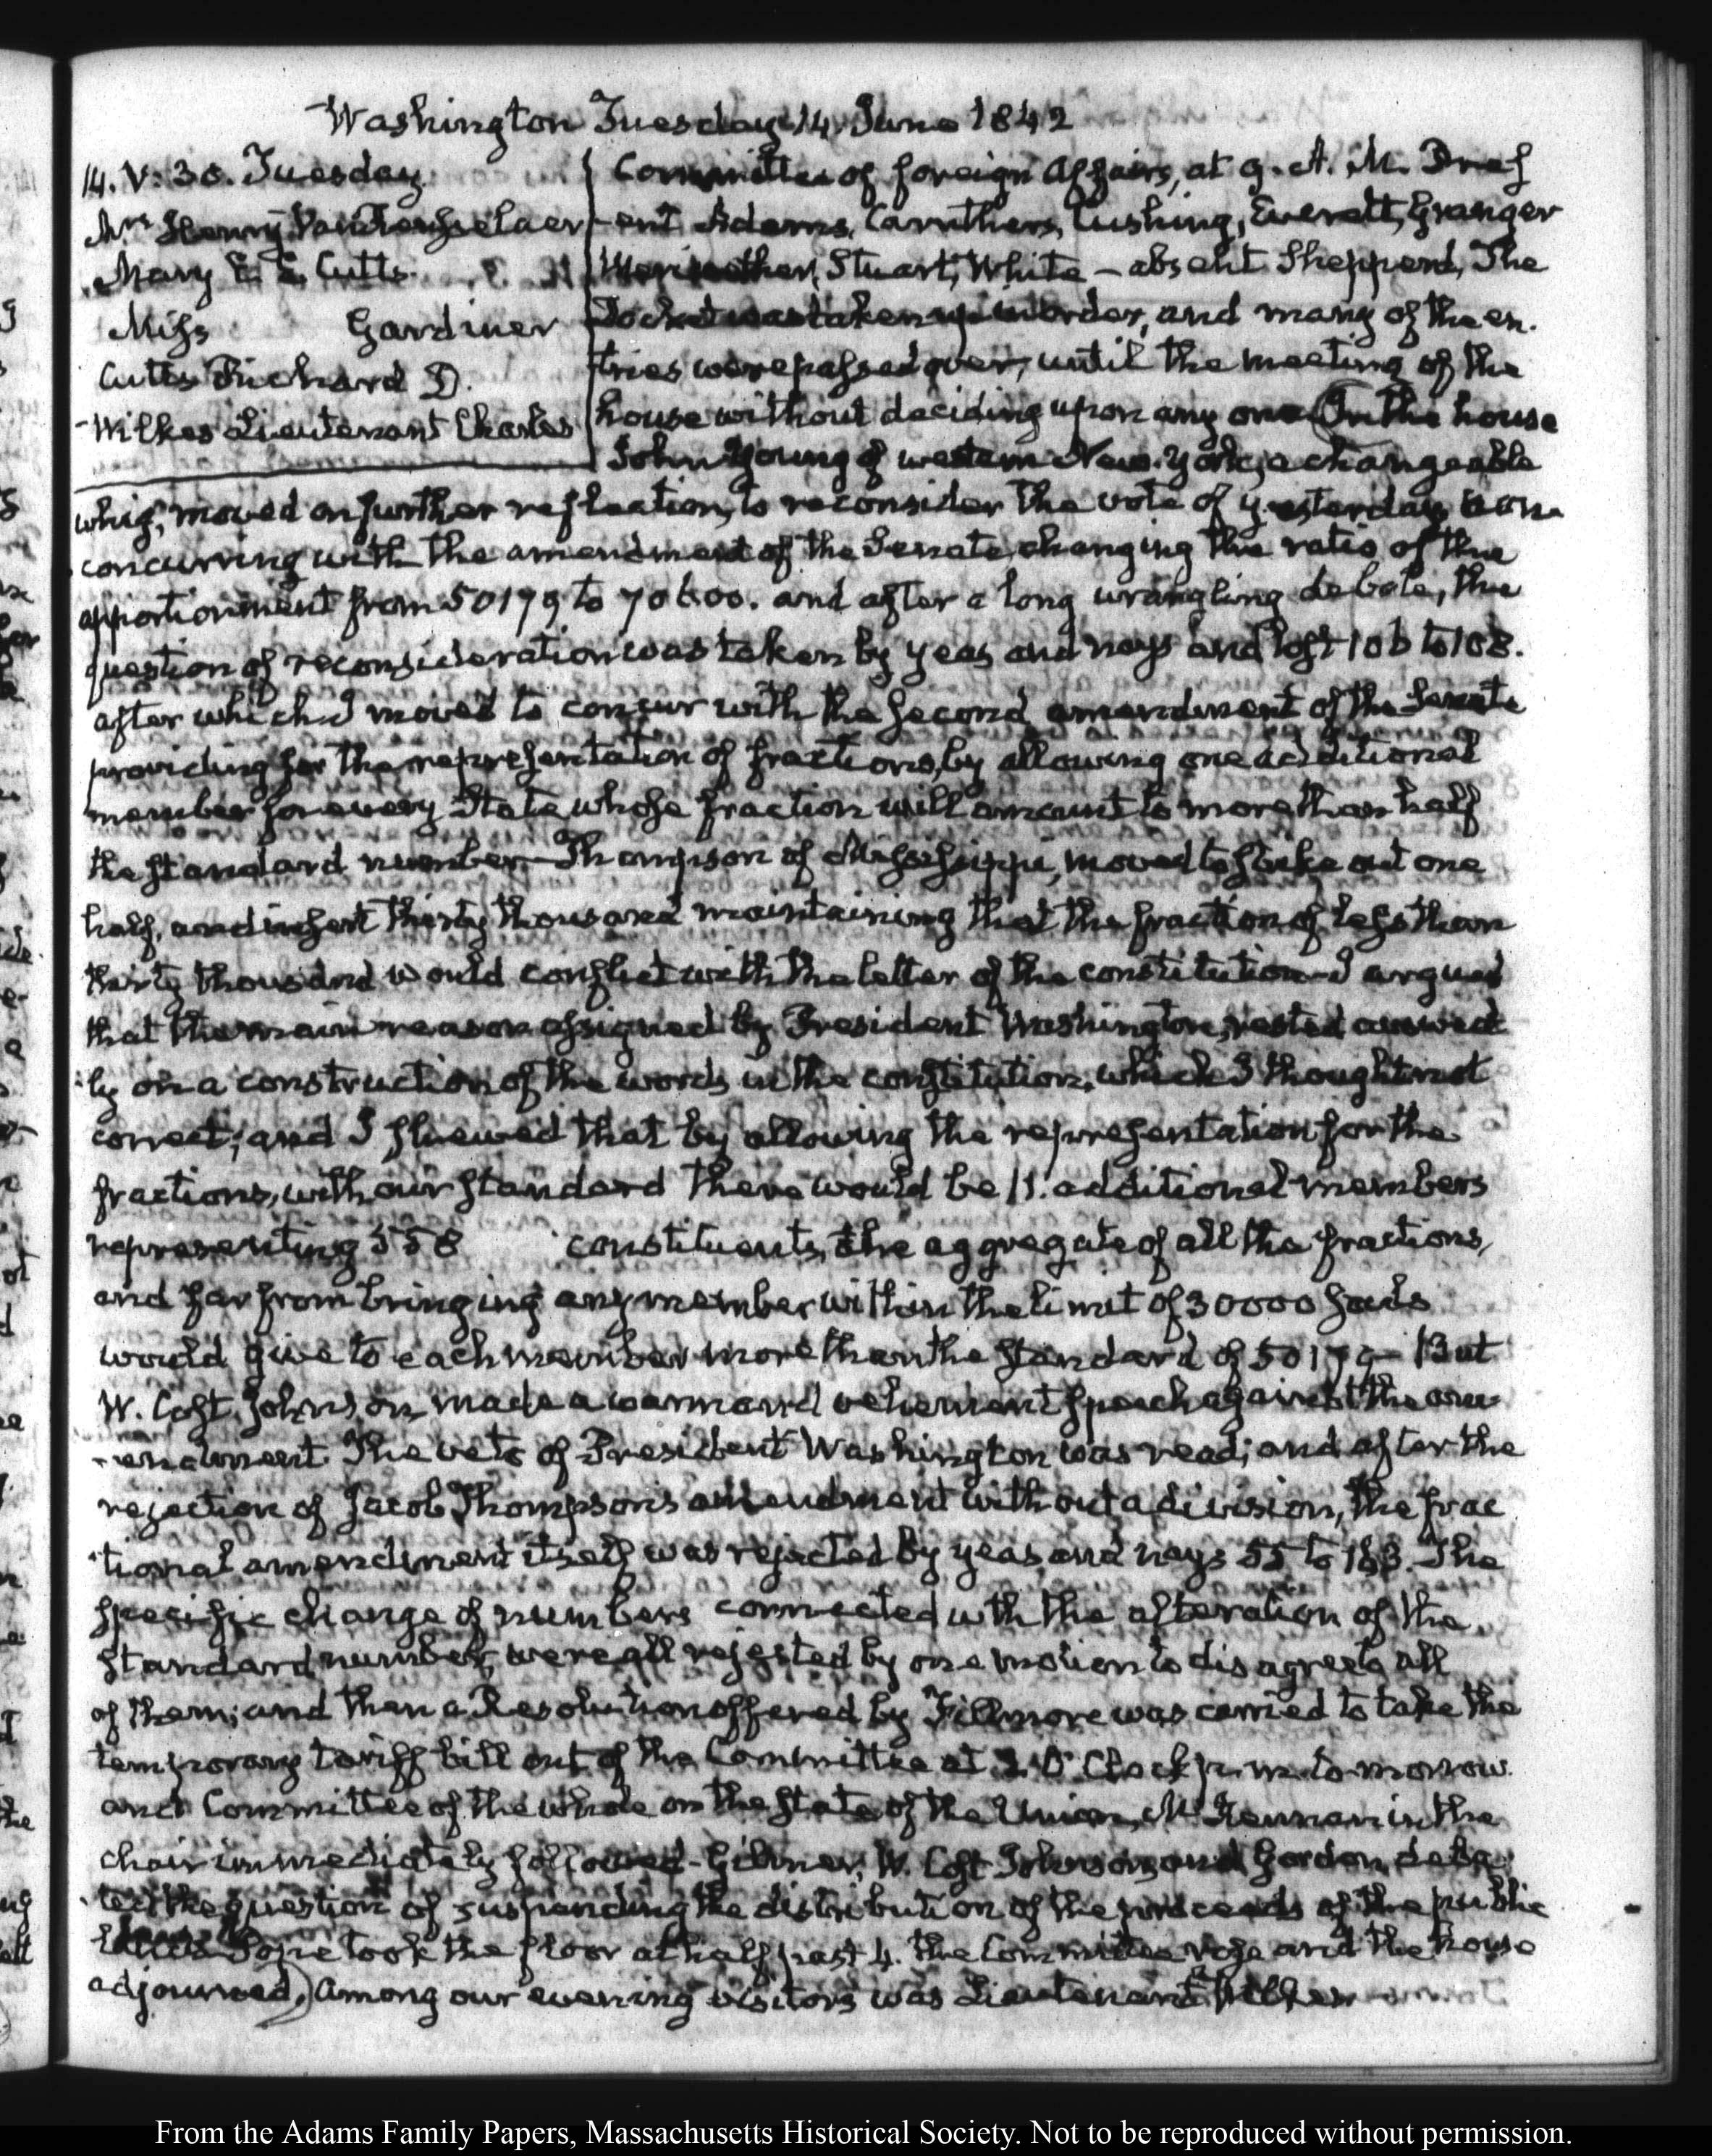 Washington Tuesday 14. June 1842
14. V: 30. Tuesday
Mrs. Henry Van Rensselaer
Mary E. E. Cutts.
Miss Gardiner
Cutts Richard D.
Wilkes Lieutenant Charles
Committee of foreign Affairs, at 9. A. M. Pres
-ent Adams, Caruthers, Cushing, Everett, Granger
Meriwether, Stuart, White – absent Shepperd, The
Docket was taken up in order, and many of the en-
tries were passed over, until the meeting of the
house without deciding upon any one (In the house
John Young of western New-York, a changeable
whig, moved on further reflection, to reconsider the vote of yesterday non-
concurring with the amendment of the Senate changing the ratio of the
apportionment from 50179 to 70600. and after a long wrangling debate, the
question of reconsideration was taken by yeas and nays and lost 106 to 108.
after which I moved to concur with the second amendment of the Senate
providing for the representation of fractions, by allowing one additional
member for every State whose fraction will amount to more than half
the standard number – Thompson of Mississippi, moved to strike out one
half, and insert thirty thousand maintaining that the fraction of less than
thirty thousand would conflict with the letter of the constitution – I argued
that the main reason assigned by President Washington, rested avowed
-ly on a construction of the words in the constitution, which I thought not
correct; and I shewed that by allowing the representation for the
fractions, with our standard there would be 11. additional members
representing 558 constituents, the aggregate of all the fractions,
and far from bringing any member within the limit of 30000 souls
would give to each member more than the standard of 50179 – But
W. Cost Johnson made a warm and vehement speech against the am
-endment. The veto of President Washington was read; and after the
rejection of Jacob Thompson's amendment without a division, the frac
-tional amendment itself was rejected by yeas and nays 55 to 153. The
specific change of numbers connected with the alteration of the
standard number, were all rejected by one motion to disagree to all
of them; and then a Resolution offered by Fillmore was carried to take the
temporary tariff bill out of the Committee at 2 O'Clock p. m. to-morrow.
and Committee of the whole on the state of the Union, McKennan in the
chair immediately followed – Gilmer, W. Cost Johnson, and Gordon deba
-ted the question of suspending the distribution of the proceeds of the public
lands Pope took the floor at half past 4. the Committee rose and the house
adjourned.) Among our evening visitors was Lieutenant Wilkes
From the Adams Family Papers, Massachusetts Historical Society. Not to be reproduced without permission.